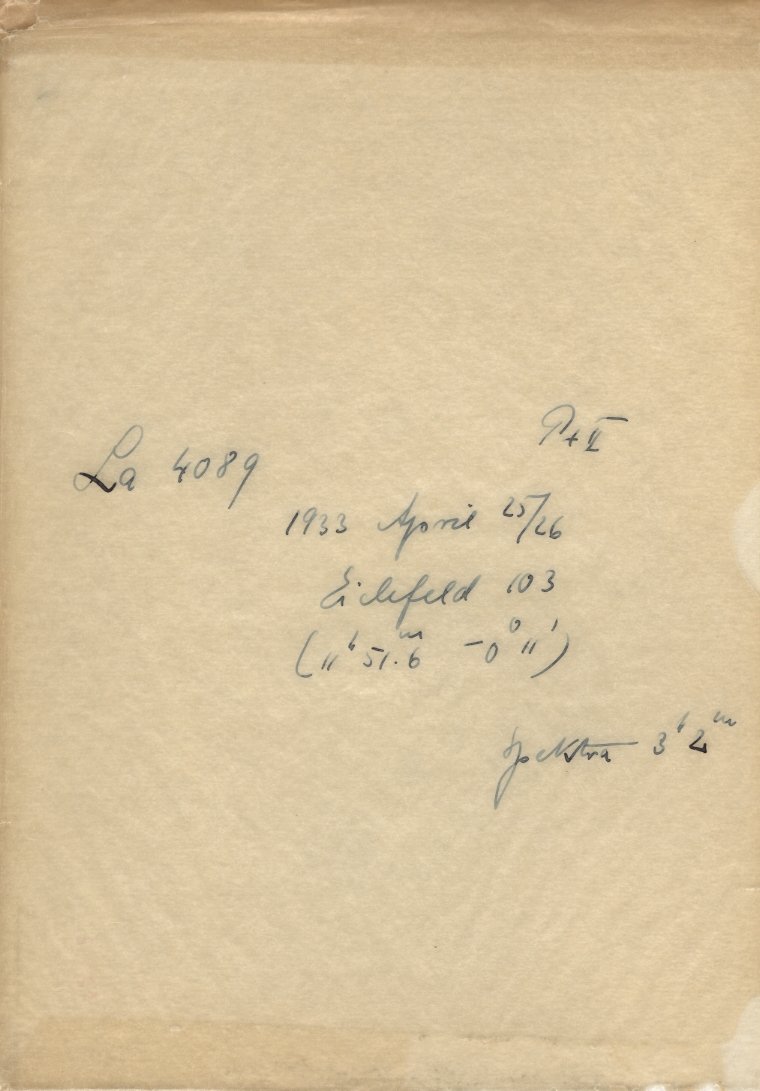 La 4089
P+II
1933 April 25/26
Eichfeld 103
(11ʰ 51.6ᵐ −0° 11')
Spektra 3ʰ 2ᵐ